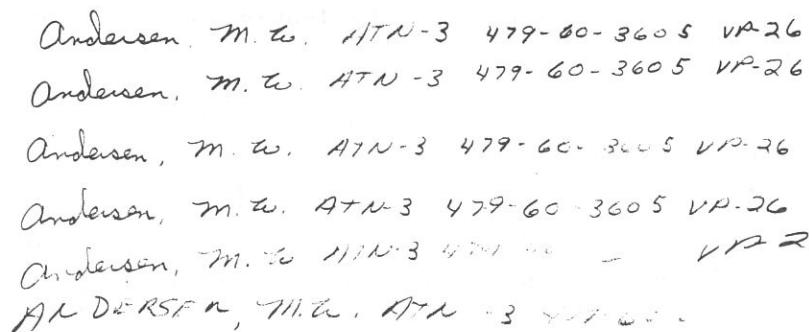 Andersen, M. W. ATN-3 479-60-3605 VP-26
Andersen, M. W. ATN-3 479-60-3605 VP-26
Andersen, M. W. ATN-3 479-60-3605 VP-26
Andersen, M. W. ATN-3 479-60-3605 VP-26
Andersen, M. W ATN-3 VP-2
ANDERSEN, M.W. ATN-3